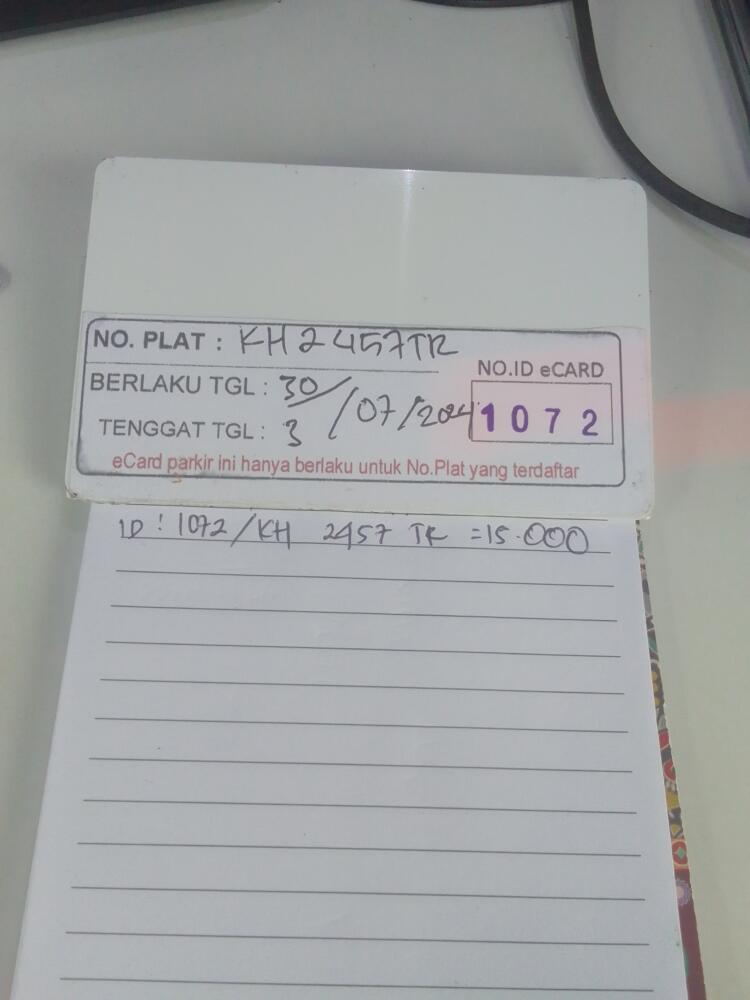 NO. PLAT : KH 2457TR
NO.ID eCARD
BERLAKU TGL : 30/07/2024
1072
TENGGAT TGL : 3
eCard parkir ini hanya berlaku untuk No.Plat yang terdaftar
ID : 1072/KH 2457 TR =15.000